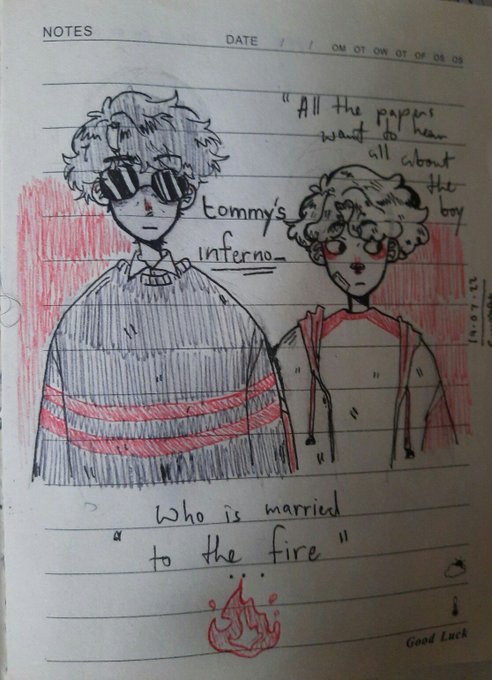 NOTES
DATE / / OM OT OW OT OF OS OS
"All the papers
want to hear
all about
the
boy
tommy's
inferno_
who is married
" to the fire "
Good Luck